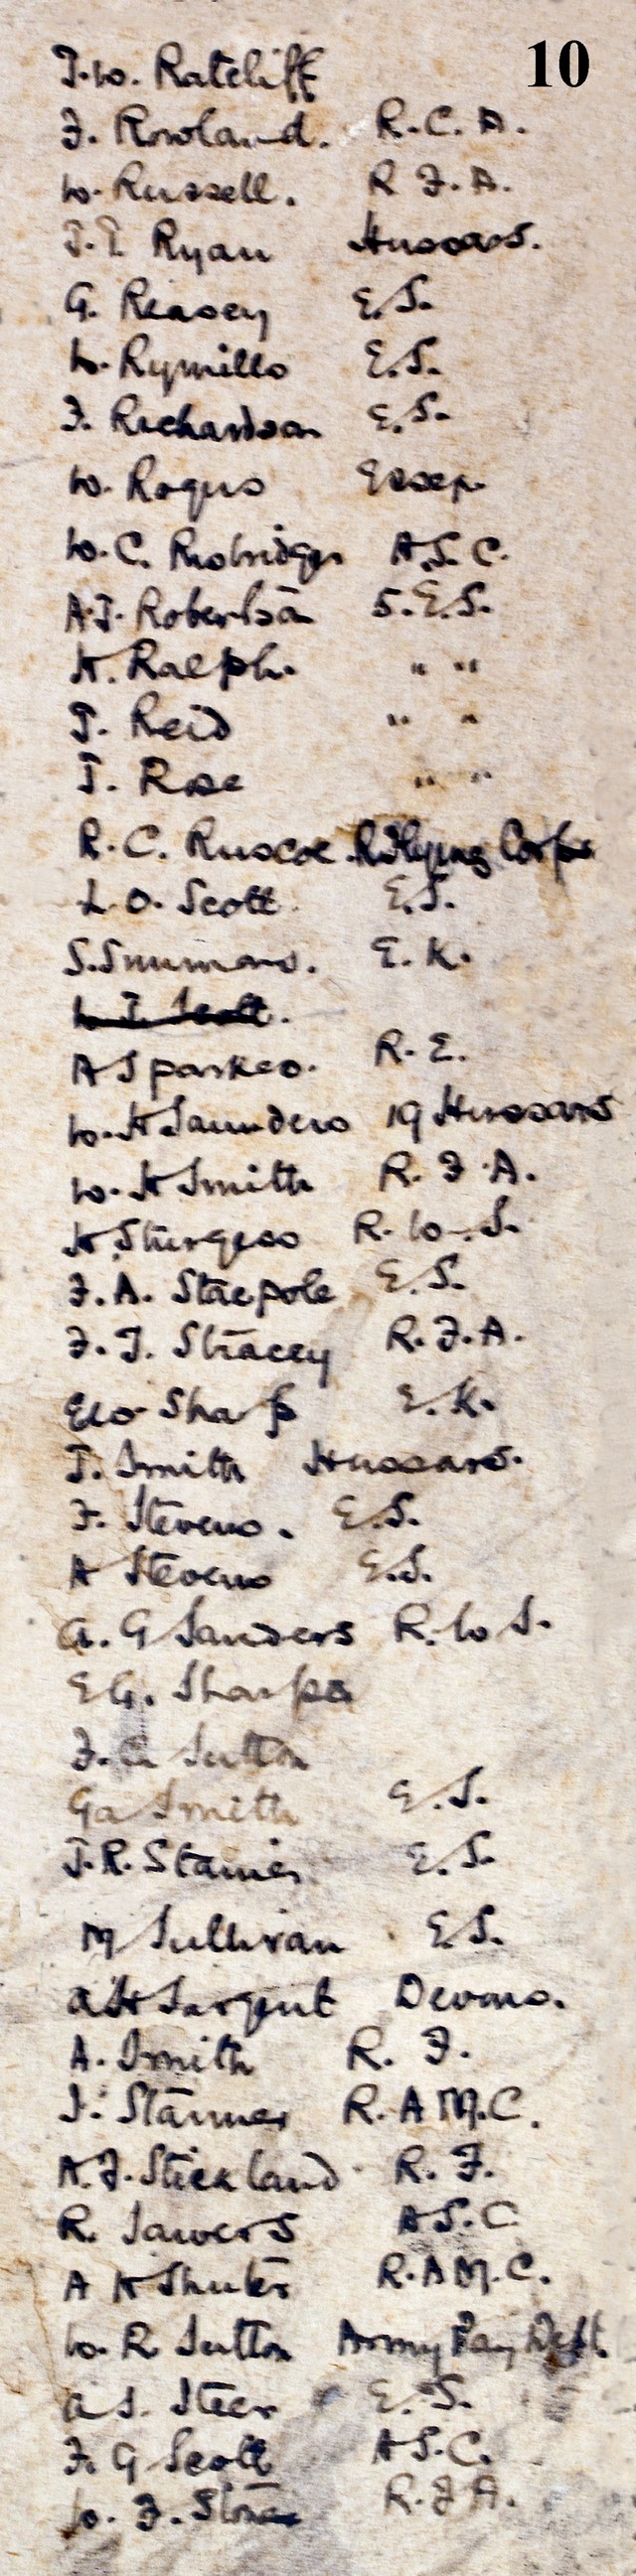 10
T.W. Ratcliff
F. Rowland. R.C.A.
W. Russell. R F.A.
T.T. Ryan Hussars.
G. Reasey E.S.
W. Rymills E.S.
F. Richardson E.S.
W. Rogus Essex
W.C. A.S.C.
A.J. Robertson 5.E.S.
H. Ralph. " "
T. Reid " "
T. Rose " "
R.C. Ruscoe Flying Corps
L.O. Scott E.S.
S. Simmans. E.K.
Scott.
A Sparkes. R.E.
W.H Saunders 19 Hussars
W.H Smith R.F.A.
H. Sturgess R.W.S.
F.A. Stacpole E.S.
F.J. Stracey R.F.A.
Geo Sharp E.K.
T. Smith Hussars.
F. Stevens. E.S.
A Stevens E.S.
A.G Sanders R.W S.
E G. Sharpe
Sutton
Ga Smith E.S.
J.R. Stainer E.S.
M Sullivan E.S.
A H Sargent Devons.
A. Smith R.F.
J. Stanner R.A M.C.
A.F. Stickland R.F.
R. Sawers A S.C
A H Shuter R.A M.C.
W.R Sutton Army Pay Dept.
A S. Steer E.S.
F. G Scott A S.C.
W. F. Stone R.F A.